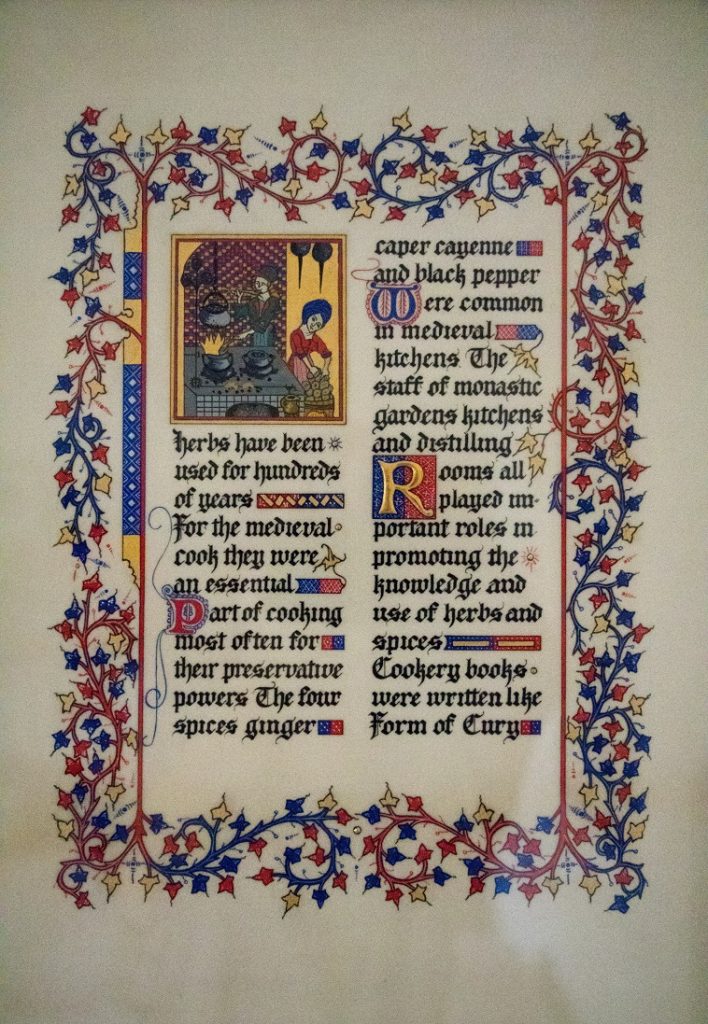 herbs have been
used for hundreds
of years
For the medieval
cook they were
an essential
Part of cooking
most often for
their preservative
powers The four
spices ginger
caper cayenne
and black pepper
Were common
in medieval
kitchens The
staff of monastic
gardens kitchens
and distilling
Rooms all
played im-
portant roles in
promoting the
knowledge and
use of herbs and
spices
Cookery books
were written like
Form of Cury